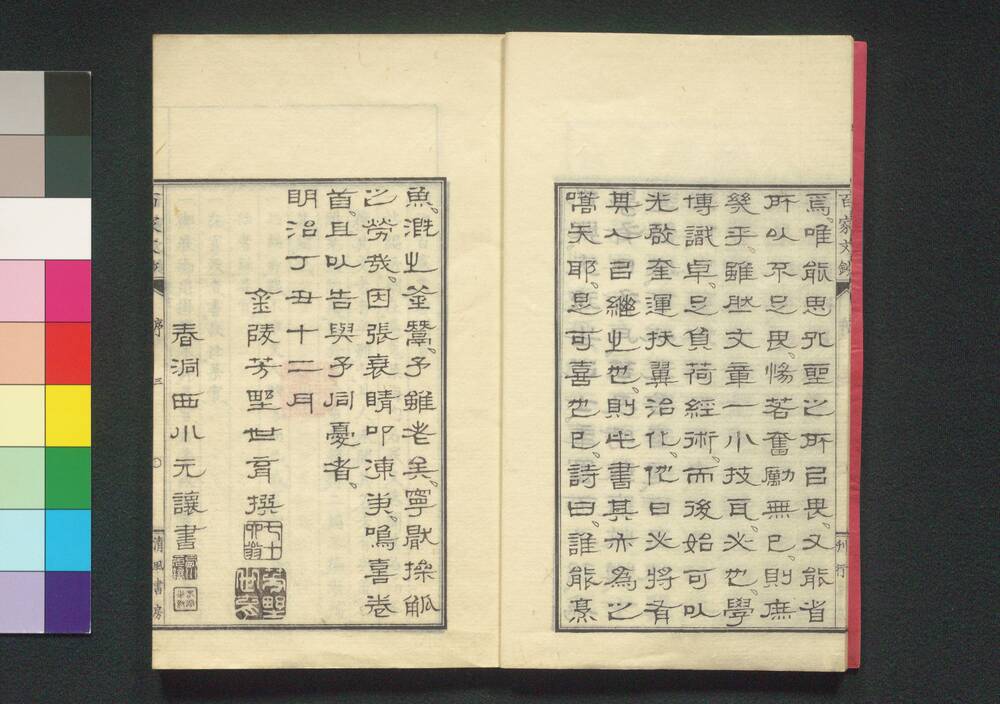 百家文鈔
刊行
焉。唯能思孔聖之所㠯畏。又能省
所以不足畏。惕若奮勵無已。則庶
幾乎。雖肰文章一小技耳。必也學
博識卓。足負荷經術。而後始可以
光啟奎運扶翼治化。他日必將有
其人㠯繼㞢也。則此書其亦為之
嚆矢耶。是可喜也已。詩曰。誰能亯
魚。溉㞢釜鬵。予雖老矣。寧厭操觚
之勞哉。因張衰睛叩凍。卷
首。且以告與予同憂者。
明治丁丑十二月
金陵芳野世育撰
七十六翁
芳野世育
春洞西川元讓書
百家文鈔 序 三 清風書房